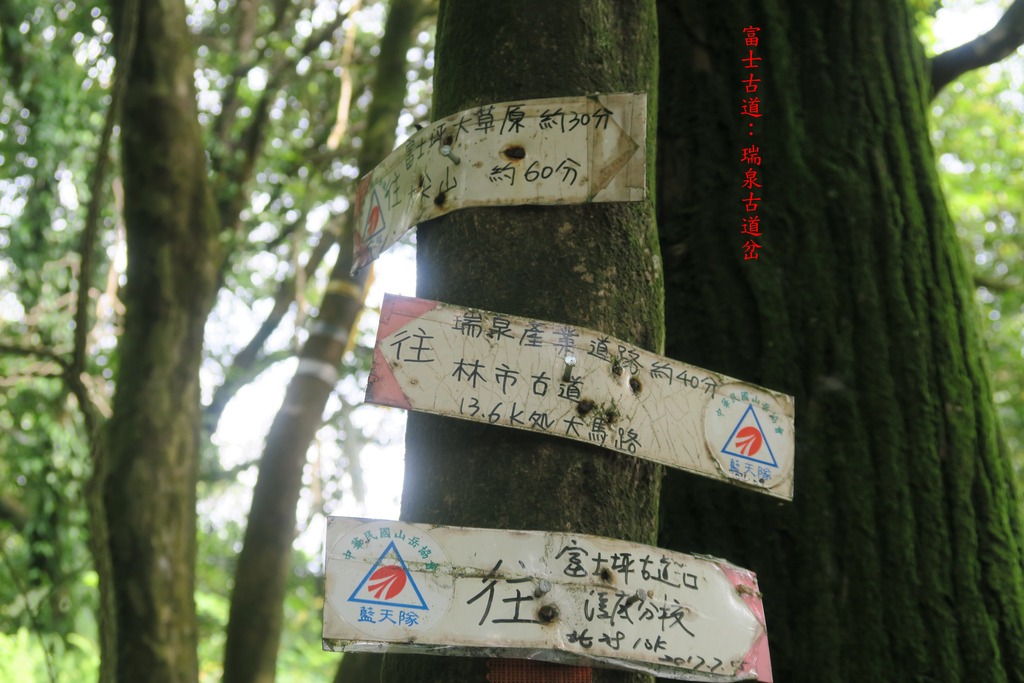 富士古道：瑞泉古道岔
富士坪大草原 約30分
往 尖山 約60分
瑞泉產業道路 約40分
往 林市古道
13.6K処大馬路
中華民國山岳協會
藍天隊
中華民國山岳協會
藍天隊
往
富士坪古道口
分校
2017.7